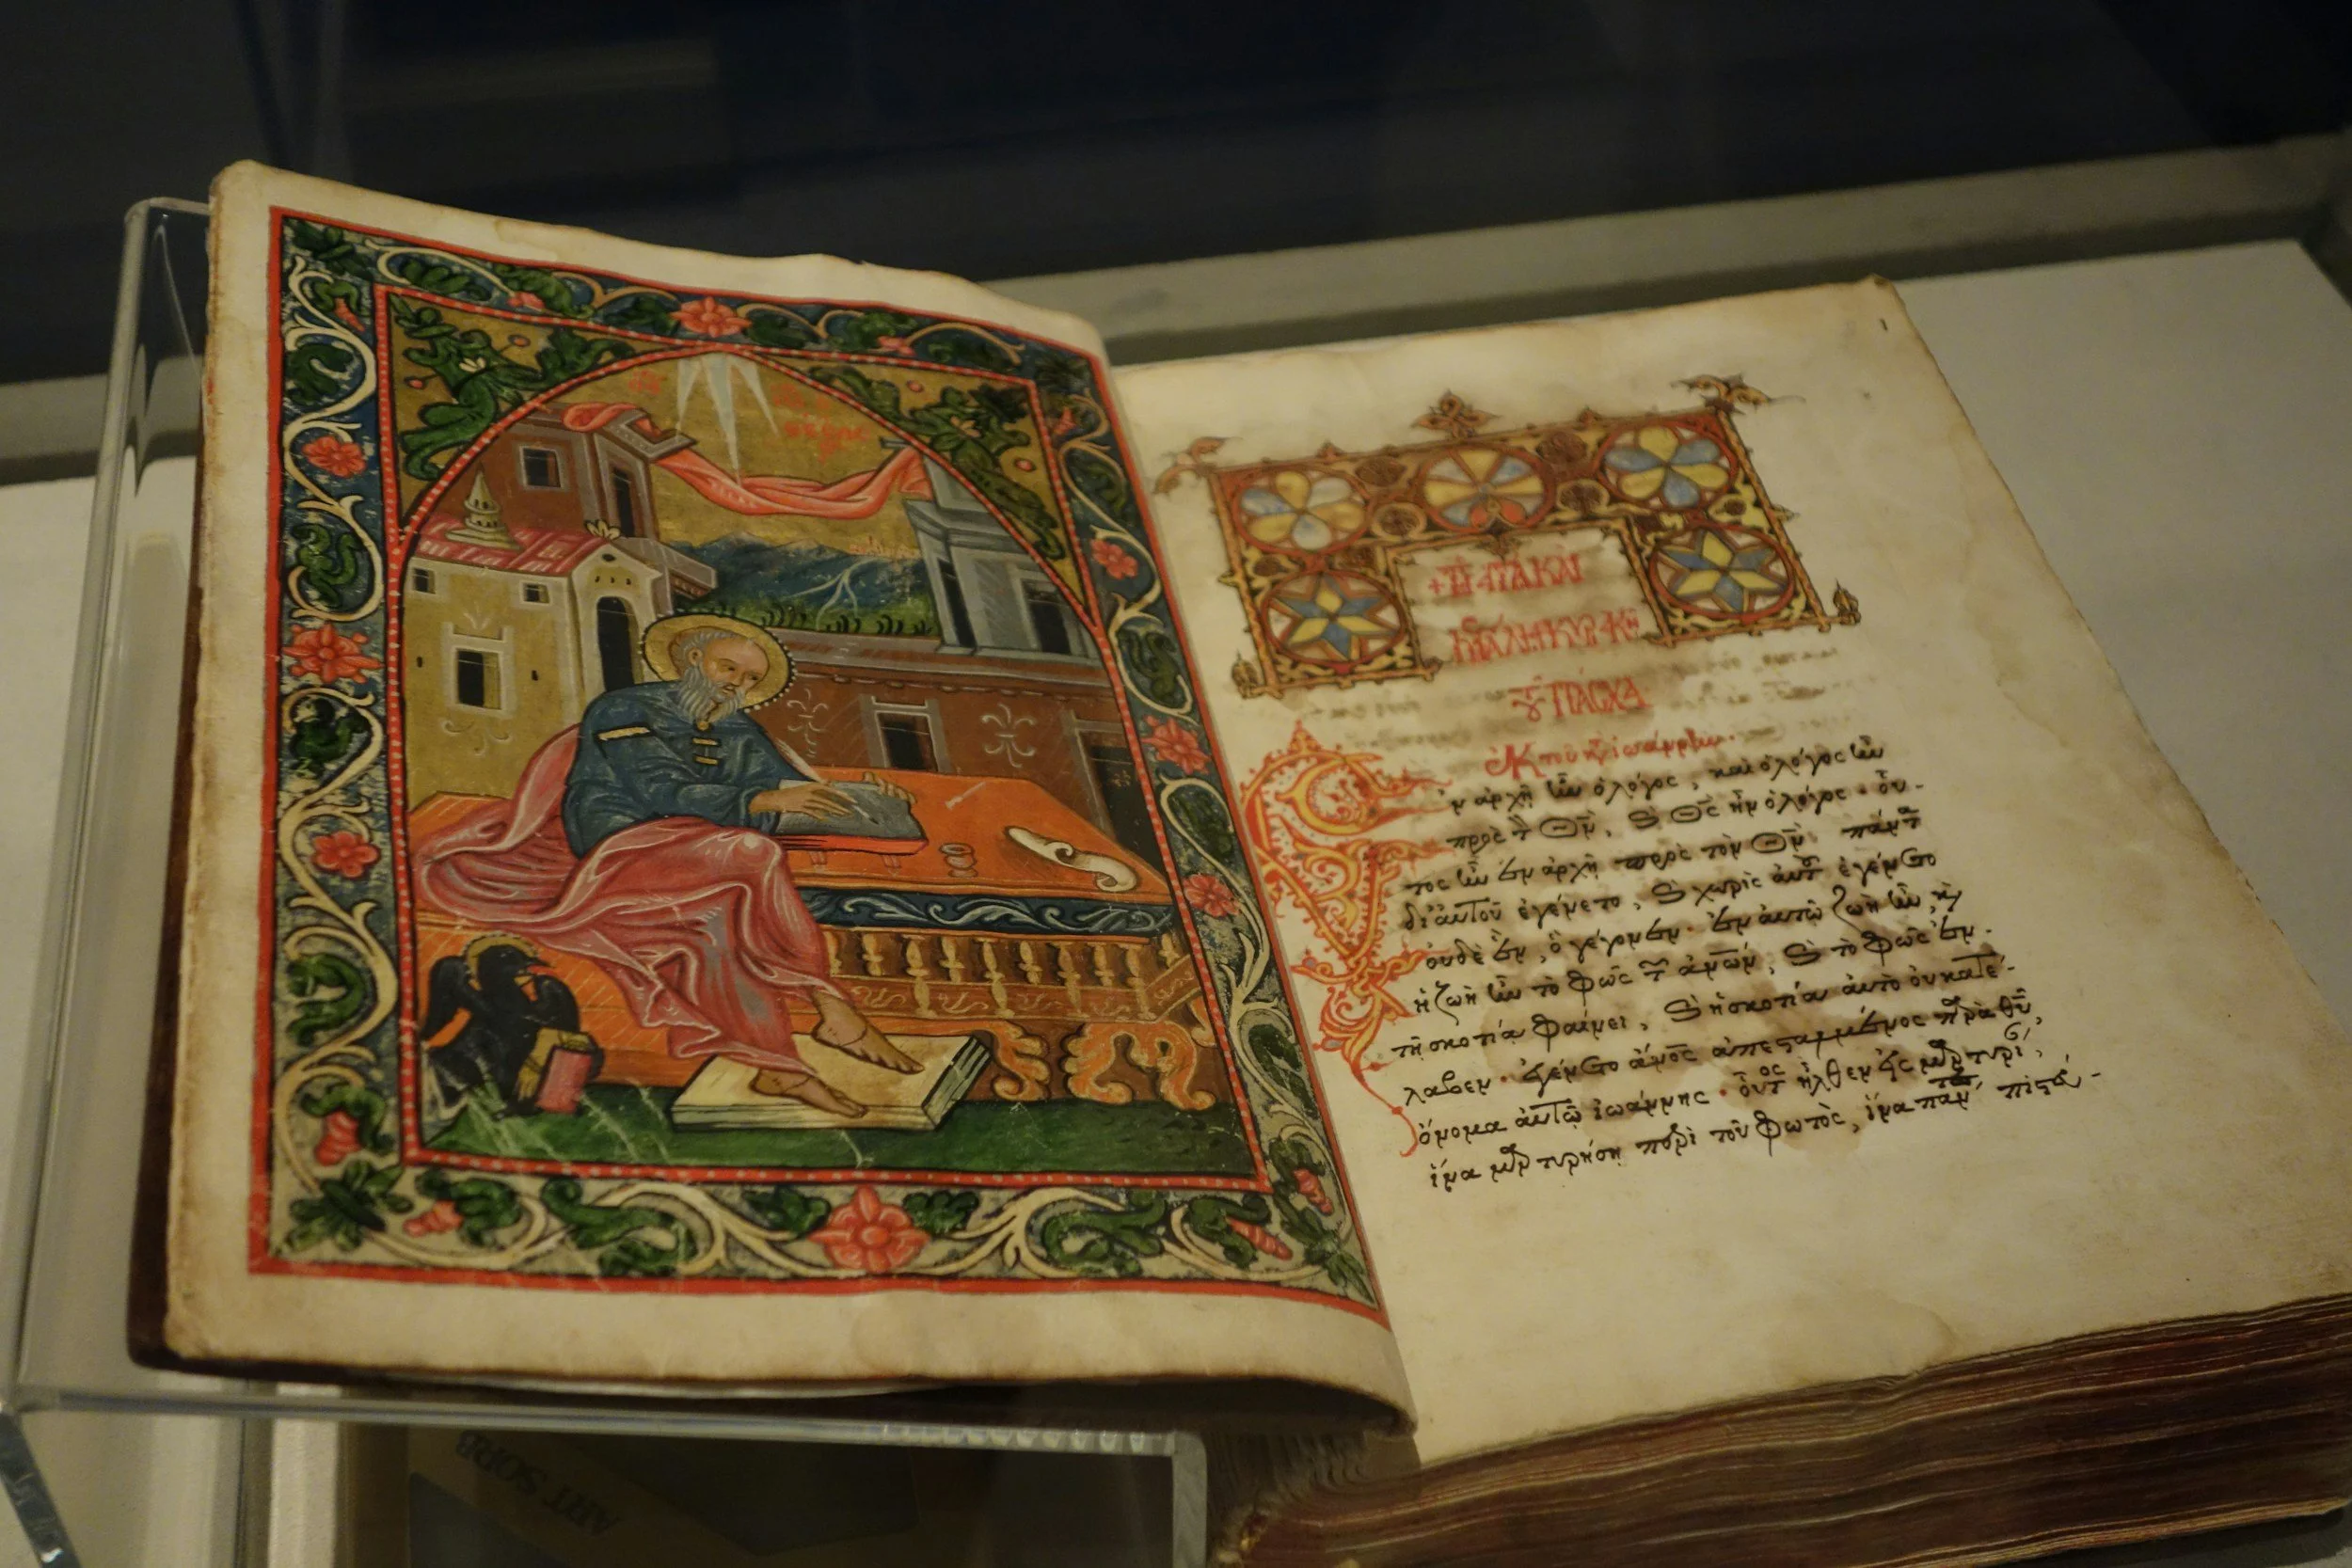 + τῇ ἁγίᾳ καὶ
μεγάλη κυριακῇ
τοῦ πάσχα
ἐκ τοῦ κατὰ ἰωάννην.
Ἐν ἀρχῇ ἦν ὁ λόγος, καὶ ὁ λόγος ἦν
πρὸς τὸν Θν̅, καὶ Θς̅ ἦν ὁ λόγος. οὗ-
τος ἦν ἐν ἀρχῇ πρὸς τὸν Θν̅. πάντα
δι' αὐτοῦ ἐγένετο, καὶ χωρὶς αὐτοῦ ἐγένετο
οὐδὲ ἓν, ὃ γέγονεν. ἐν αὐτῷ ζωὴ ἦν, καὶ
ἡ ζωὴ ἦν τὸ φῶς τῶν ἀνω̅ν, καὶ τὸ φῶς ἐν
τῇ σκοτίᾳ φαίνει, καὶ ἡ σκοτία αὐτὸ οὐ κατέ-
λαβεν. ἐγένετο ἄνο̅ς ἀπεσταλμένος παρὰ θυ̅,
ὄνομα αὐτῷ ἰωάννης. οὗτος ἦλθεν εἰς μαρτυρί,
ἵνα μαρτυρήσῃ περὶ τοῦ φωτὸς, ἵνα πάντες πιστεύ-
ART